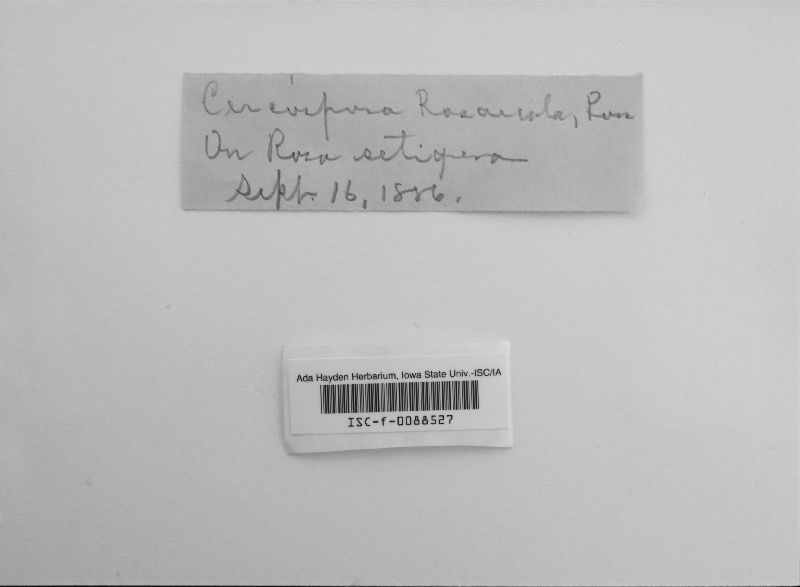 Cercospora Rosaecola, Pass
On Rosa setigera
Sept. 16, 1886.
Ada Hayden Herbarium, Iowa State Univ.-ISC/IA
ISC-f-0088527